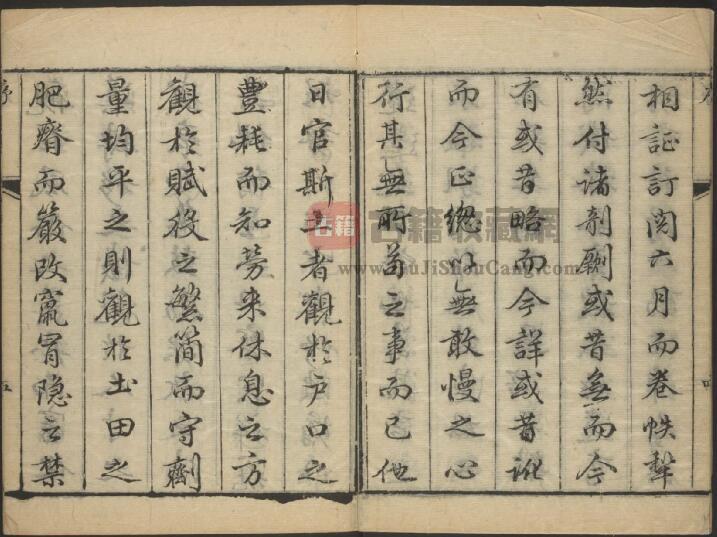 相証訂閱六月而卷帙犂
然付諸剞劂或昔無而今
有或昔略而今詳或昔訛
而今正總以無敢慢之心
行其無所苟之事而已他
日官斯土者觀於户口之
豊耗而知勞来休息之方
觀於賦役之繁簡而守劑
量均平之則觀於土田之
肥瘠而嚴改竄冐隐之禁
序
古籍
古籍收藏網
www.GuJiShouCang.com